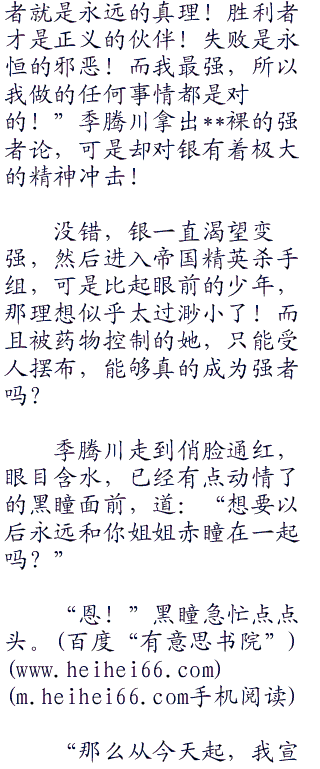 者就是永远的真理！胜利者
才是正义的伙伴！失败是永
恒的邪恶！而我最强，所以
我做的任何事情都是对
的！”季腾川拿出**裸的强
者论，可是却对银有着极大
的精神冲击！
没错，银一直渴望变
强，然后进入帝国精英杀手
组，可是比起眼前的少年，
那理想似乎太过渺小了！而
且被药物控制的她，只能受
人摆布，能够真的成为强者
吗？
季腾川走到俏脸通红，
眼目含水，已经有点动情了
的黑瞳面前，道：“想要以
后永远和你姐姐赤瞳在一起
吗？”
“恩！”黑瞳急忙点点
头。(百度“有意思书院”)
(www.heihei66.com)
(m.heihei66.com手机阅读)
“那么从今天起，我宣